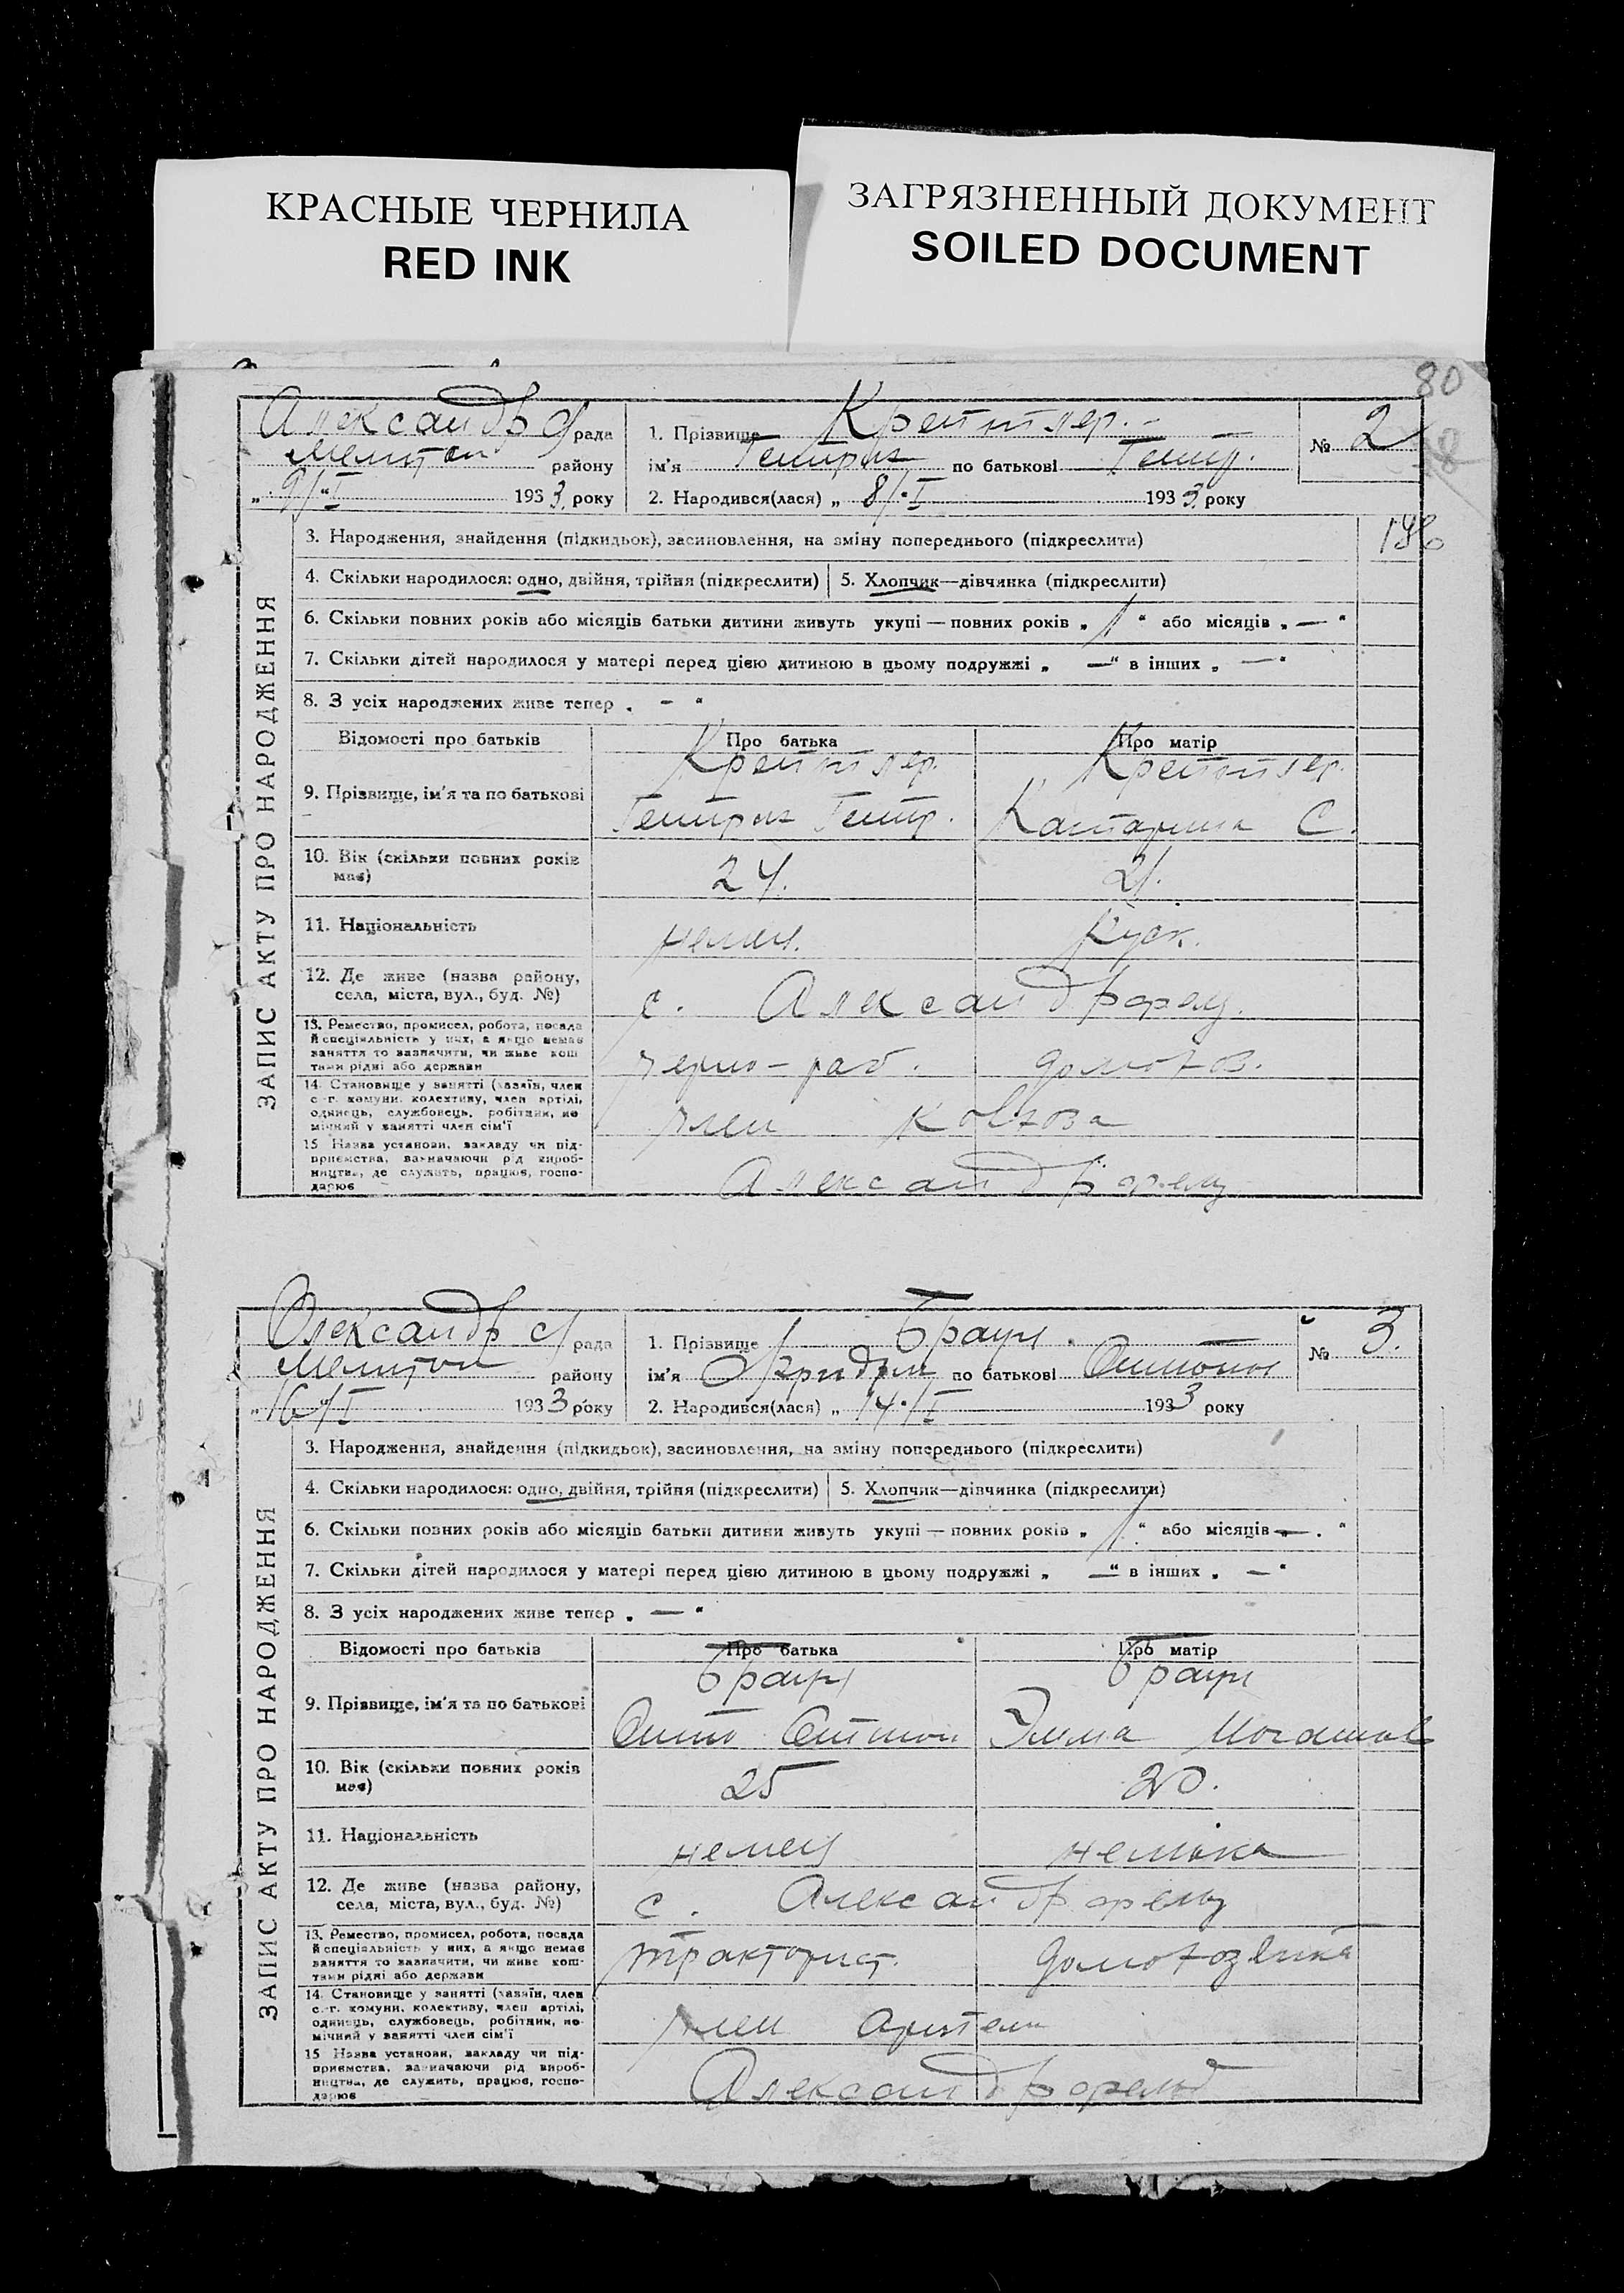 КРАСНЫЕ ЧЕРНИЛА
RED INK
ЗАГРЯЗНЕННЫЙ ДОКУМЕНТ
SOILED DOCUMENT
80
Александр ф рада
районy
„ 9/I 1933 року
1. Прізвище Крейтлер.
ім'я Генрих по батькові Генр.
2. Народився(лася) „ 8/I 1933 року
№ 2
ЗАПИС АКТУ ПРО НАРОДЖЕННЯ
3. Народження, знайдення (підкидьок), засиновлення, на зміну попереднього (підкреслити)
4. Скільки народилося: одно, двійня, трійня (підкреслити)
5. Хлопчик—дівчинка (підкреслити)
6. Скільки повних років або місяців батьки дитини живуть укупі — повних років „ 1 “ або місяців „ — “
7. Скільки дітей народилося у матері перед цією дитиною в цьому подружжі „ —“ в інших „ — “
8. З усіх народжених живе тепер „ - “
Відомості про батьків
Про батька
Про матір
9. Прізвище, ім'я та по батькові
Крейтлер.
Генрих Генр.
Крейтлер.
Катарина С.
10. Вік (скільки повних років
має)
24.
21.
11. Національність
немец.
Руск.
12. Де живе (назва району,
села, міста, вул., буд. №)
с. Александрфелд.
13. Ремество, промисел, робота, посада
й спеціальність у них, а якщо немає
заняття то зазначити, чи живе кош
тами рідні або держави
черно-раб.
домохоз.
14. Становище у занятті (хазяїн, член
с.-г. комуни, колективу, член артілі,
одинець, службовець, робітник, по
мічний у занятті член сім'ї
член Колхоза
15 Назва установи, закладу чи під-
приємства, зазначаючи рід вироб-
ництва, де служить, працює, госпо-
дарює
Александрфелд
Олександр ф рада
району
„ 16/I 1933 року
1. Прізвище Браун.
ім'я Фридрих по батькові Оттонов
2. Народився(лася) „ 14/I 1933 року
№ 3.
ЗАПИС АКТУ ПРО НАРОДЖЕННЯ
3. Народження, знайдення (підкидьок), засиновлення, на зміну попереднього (підкреслити)
4. Скільки народилося: одно, двійня, трійня (підкреслити)
5. Хлопчик—дівчинка (підкреслити)
6. Скільки повних років або місяців батьки дитини живуть укупі — повних років „ 1 “ або місяців „ — “
7. Скільки дітей народилося у матері перед цією дитиною в цьому подружжі „ —“ в інших „ — “
8. З усіх народжених живе тепер „ — “
Відомості про батьків
Про батька
Про матір
9. Прізвище, ім'я та по батькові
Браун
Отто Оттон
Браун
Эмма
10. Вік (скільки повних років
має)
25
20.
11. Національність
немец
немка
12. Де живе (назва району,
села, міста, вул., буд. №)
с. Александрфелд
13. Ремество, промисел, робота, посада
й спеціальність у них, а якщо немає
заняття то зазначити, чи живе кош-
тами рідні або держави
тракторист.
домохозяйка
14. Становище у занятті (хазяїн, член
с.-г. комуни, колективу, член артілі,
одинець, службовець, робітник, по
мічний у занятті член сім'ї
член артели
15 Назва установи, закладу чи під-
приємства, зазначаючи рід вироб-
ництва, де служить, працює, госпо-
дарює
Александрфелд